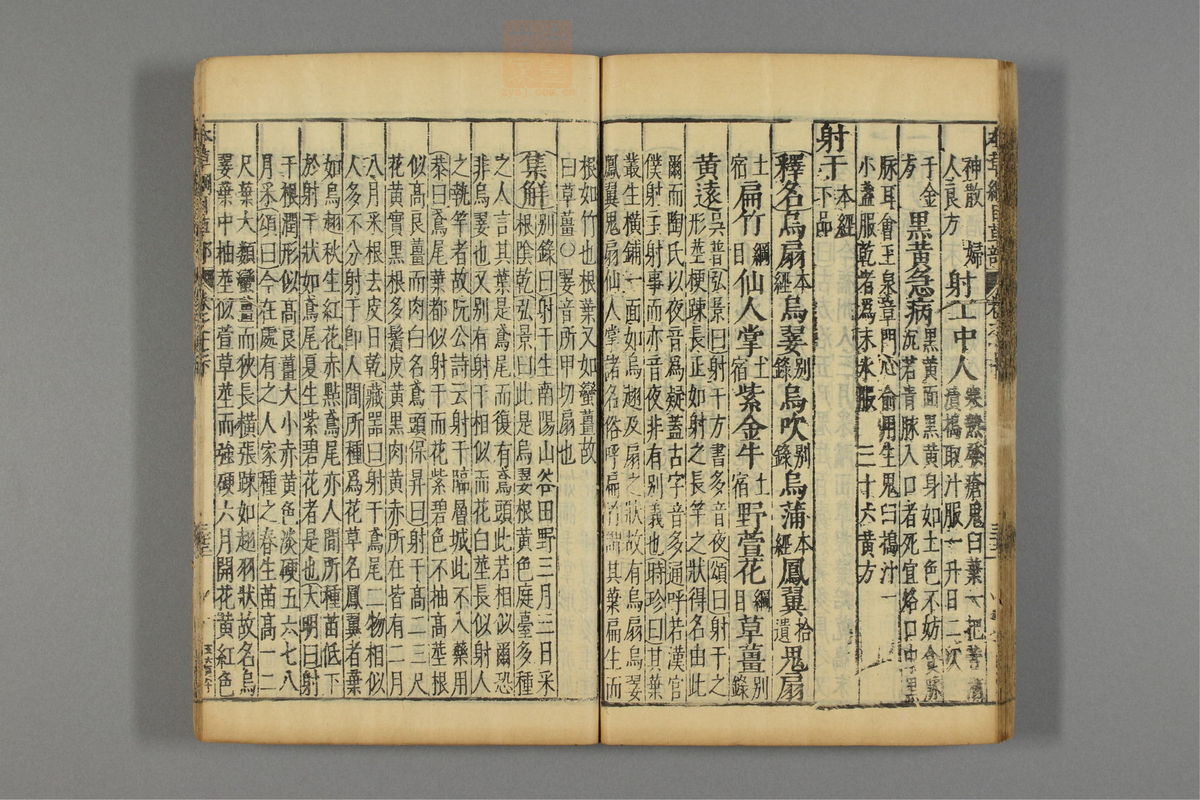 神散
人良方 婦 射工中人 寒熱發瘡鬼臼葉一把苦酒
漬搗取汁服一升日二次
千金方 黑黃急病 黑黃面黑黃身如土色不妨食脈
沉若青脈入口者死宜烙口中黑
脉耳會玉泉章門心俞用生鬼臼搗汁一
小盞服乾者爲末水服 三十六黃方
射干 本經下品
釋名烏扇本經烏翣別錄烏吹別錄烏蒲本經鳳翼拾遺鬼扇
土宿扁竹綱目仙人掌土宿紫金牛土宿野萱花綱目草薑別錄
黃遠吳普弘景曰射干方書多音夜頌曰射干之
形莖梗疎長正如射之長竿之狀得名由此
爾而陶氏以夜音爲疑蓋古字音多通呼若漢官
僕射主射事而亦音夜非有別義也時珍曰其葉
叢生橫鋪一面如烏翅及扇之狀故有烏扇烏翣
鳳翼鬼扇仙人掌諸名俗呼扁竹謂其葉扁生而
根如竹也根葉又如蠻薑故
曰草薑○翣音所甲切扇也
集解別錄曰射干生南陽山谷田野三月三日采
根陰乾弘景曰此是烏翣根黃色庭臺多種
之人言其葉是鳶尾而復有鳶頭此若相似爾恐
非烏翣也又別有射干相似而花白莖長似射人
之執竿者故阮公詩云射干臨層城此不入藥用
恭曰鳶尾葉都似射干而花紫碧色不抽高莖根
似高良薑而肉白名鳶頭保昇曰射干高二三尺
花黃實黑根多鬚皮黃黑肉黃赤所在皆有二月
八月采根去皮日乾藏器曰射干鳶尾二物相似
人多不分射干卽人間所種爲花草名鳳翼者葉
如烏翅秋生紅花赤點鳶尾亦人間所種苗低下
於射干狀如鳶尾夏生紫碧花者是也大明曰射
干根潤形似高良薑大小赤黃色淡硬五六七八
月采頌曰今在處有之人家種之春生苗高一二
尺葉大類蠻薑而狹長橫張疎如翅羽狀故名烏
翣葉中抽莖似萱草莖而強硬六月開花黃紅色